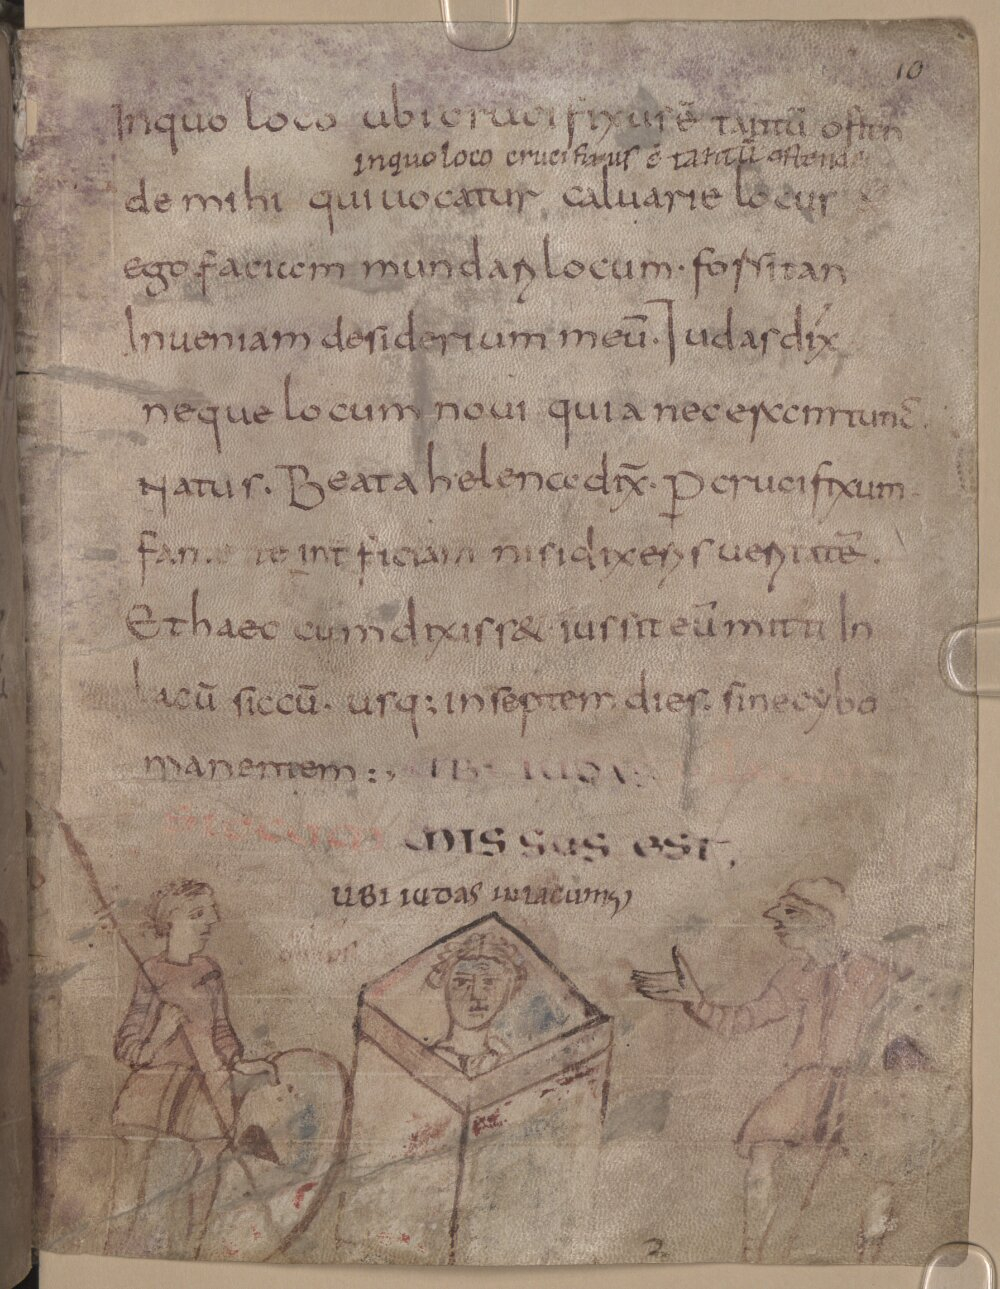 10
Inquo loco ubi crucifixur ē tantū osten
inquo loco crucifixus ē tantū ostende
de mihi qui uocatur calvarie locus
ego faciem mundari locum· forsitan
Inueniam desiderium meū. Iudas dix̄
neque locum noui quia nec
Natus. Beata helena dix̄. P crucifixum
interficiam nisi dixeris ueritatē.
Et haec cum dixiss& iussit eū mitti In
lacū siccū. usq; in septem dies. sine cybo
manentem :, UBI IUDAS
MISSUS EST,
UBI IUDAS IN LACUM
2